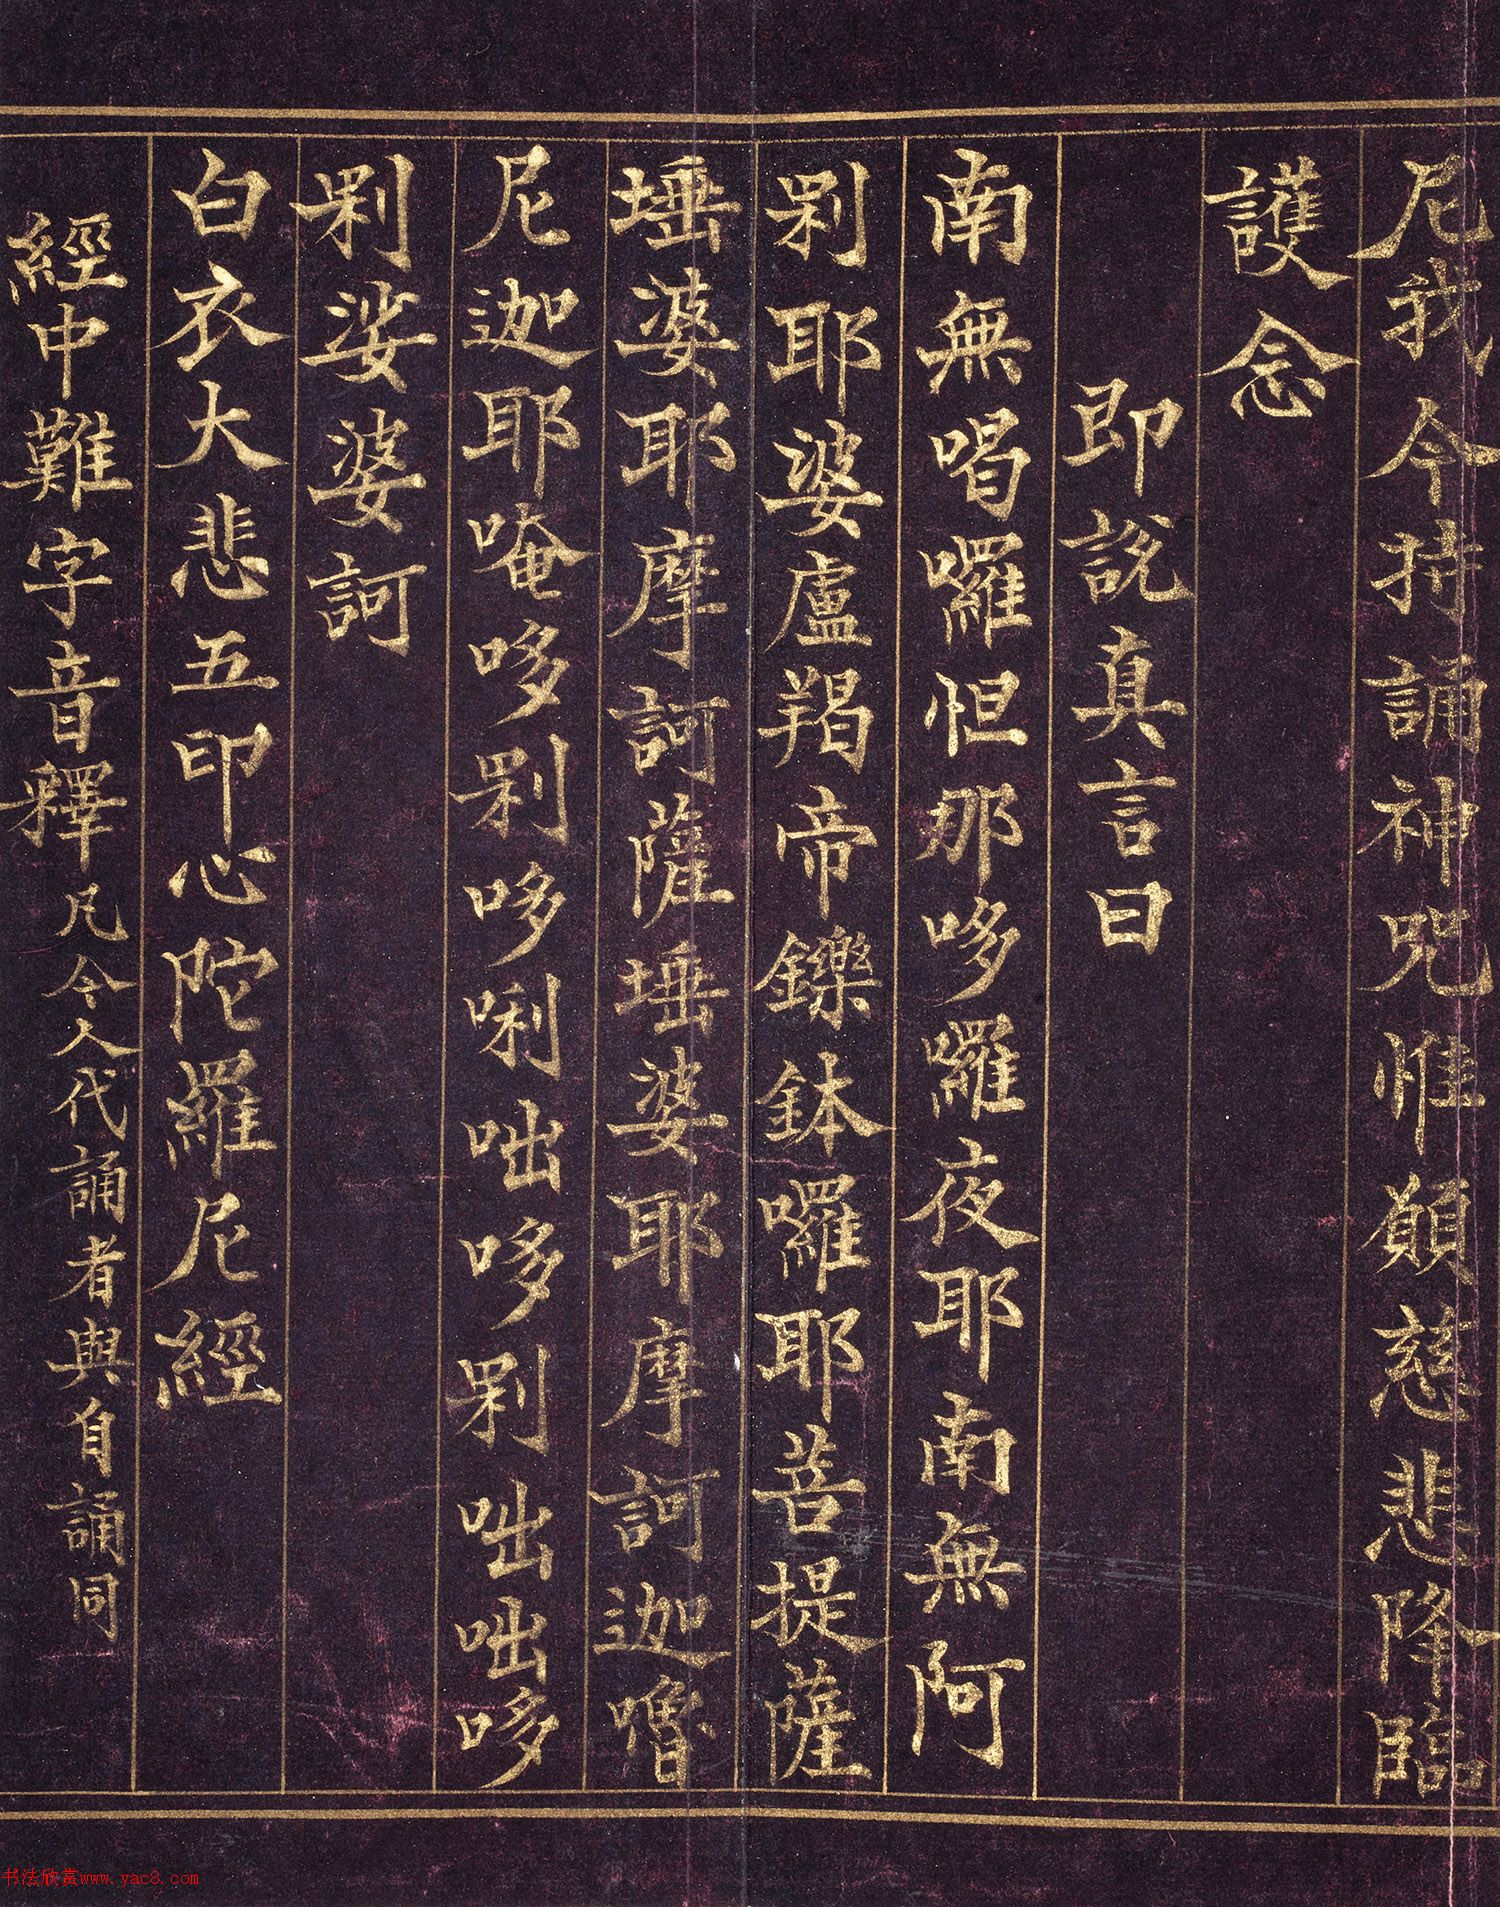 尼我今持誦神咒惟願慈悲降臨
護念
即說真言曰
南無喝囉怛那哆囉夜耶南無阿
唎耶婆盧羯帝鑠鉢囉耶菩提薩
埵婆耶摩訶薩埵埵婆耶摩訶迦嚕
尼迦耶唵哆唎哆唎咄哆唎咄咄哆
唎娑婆訶
白衣大悲五印心陀羅尼經
經中難字音釋凡今人代誦者與自誦同
书法欣赏www.yac8.com